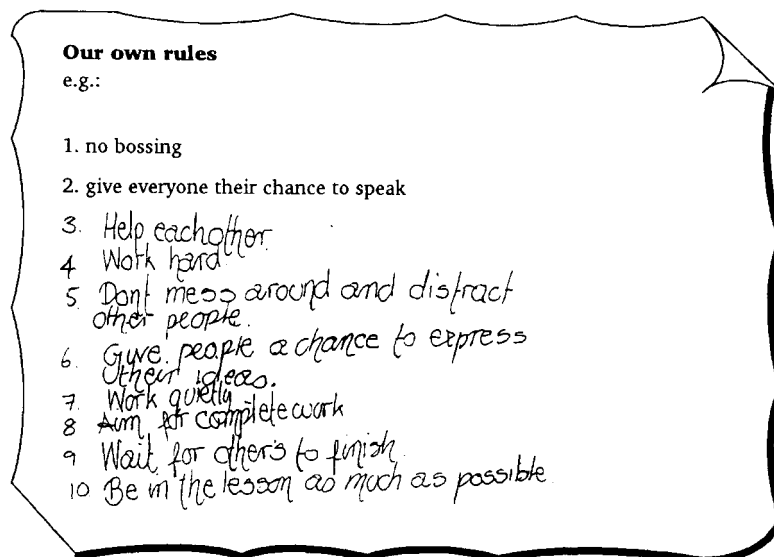 Our own rules
e.g.:
1. no bossing
2. give everyone their chance to speak
3. Help eachother.
4 Work hard
5 Dont mess around and distract
other people.
6. Give people a chance to express
their ideas.
7. Work quietly
8 Aim for complete work
9 Wait for other's to finish.
10 Be in the lesson as much as possible